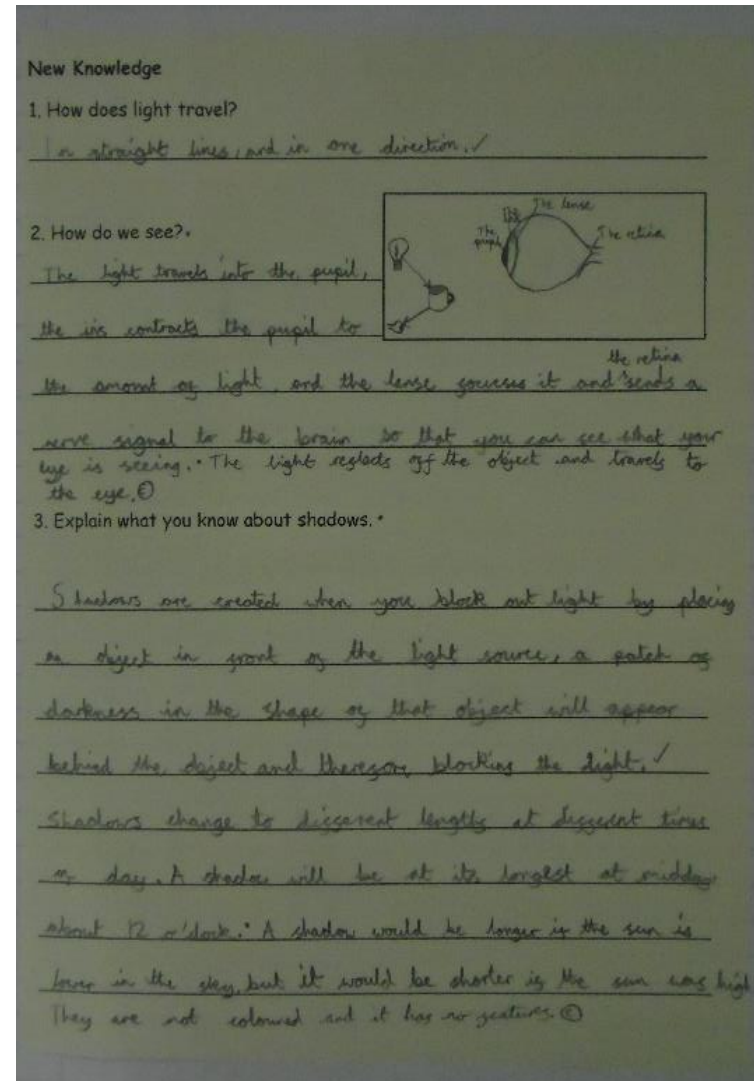 New Knowledge
1. How does light travel?
In straight lines, and in one direction. ✓
2. How do we see?
The lense
The pupil
The retina
The light travels into the pupil,
the iris contracts the pupil to
the retina
the amount of light, and the lense focuses it and sends a
nerve signal to the brain so that you can see what your
eye is seeing. • The light reflects off the object and travels to
the eye. ☺
3. Explain what you know about shadows. *
Shadows are created when you block out light by placing
an object in front of the light source, a patch of
darkness in the shape of that object will appear
behind the object and therefore blocking the light. ✓
Shadows change to different lengths at different times
of day. A shadow will be at its longest at midday
about 12 o'clock. • A shadow would be longer if the sun is
lower in the sky, but it would be shorter if the sun was high
They are not coloured and it has no features. ☺